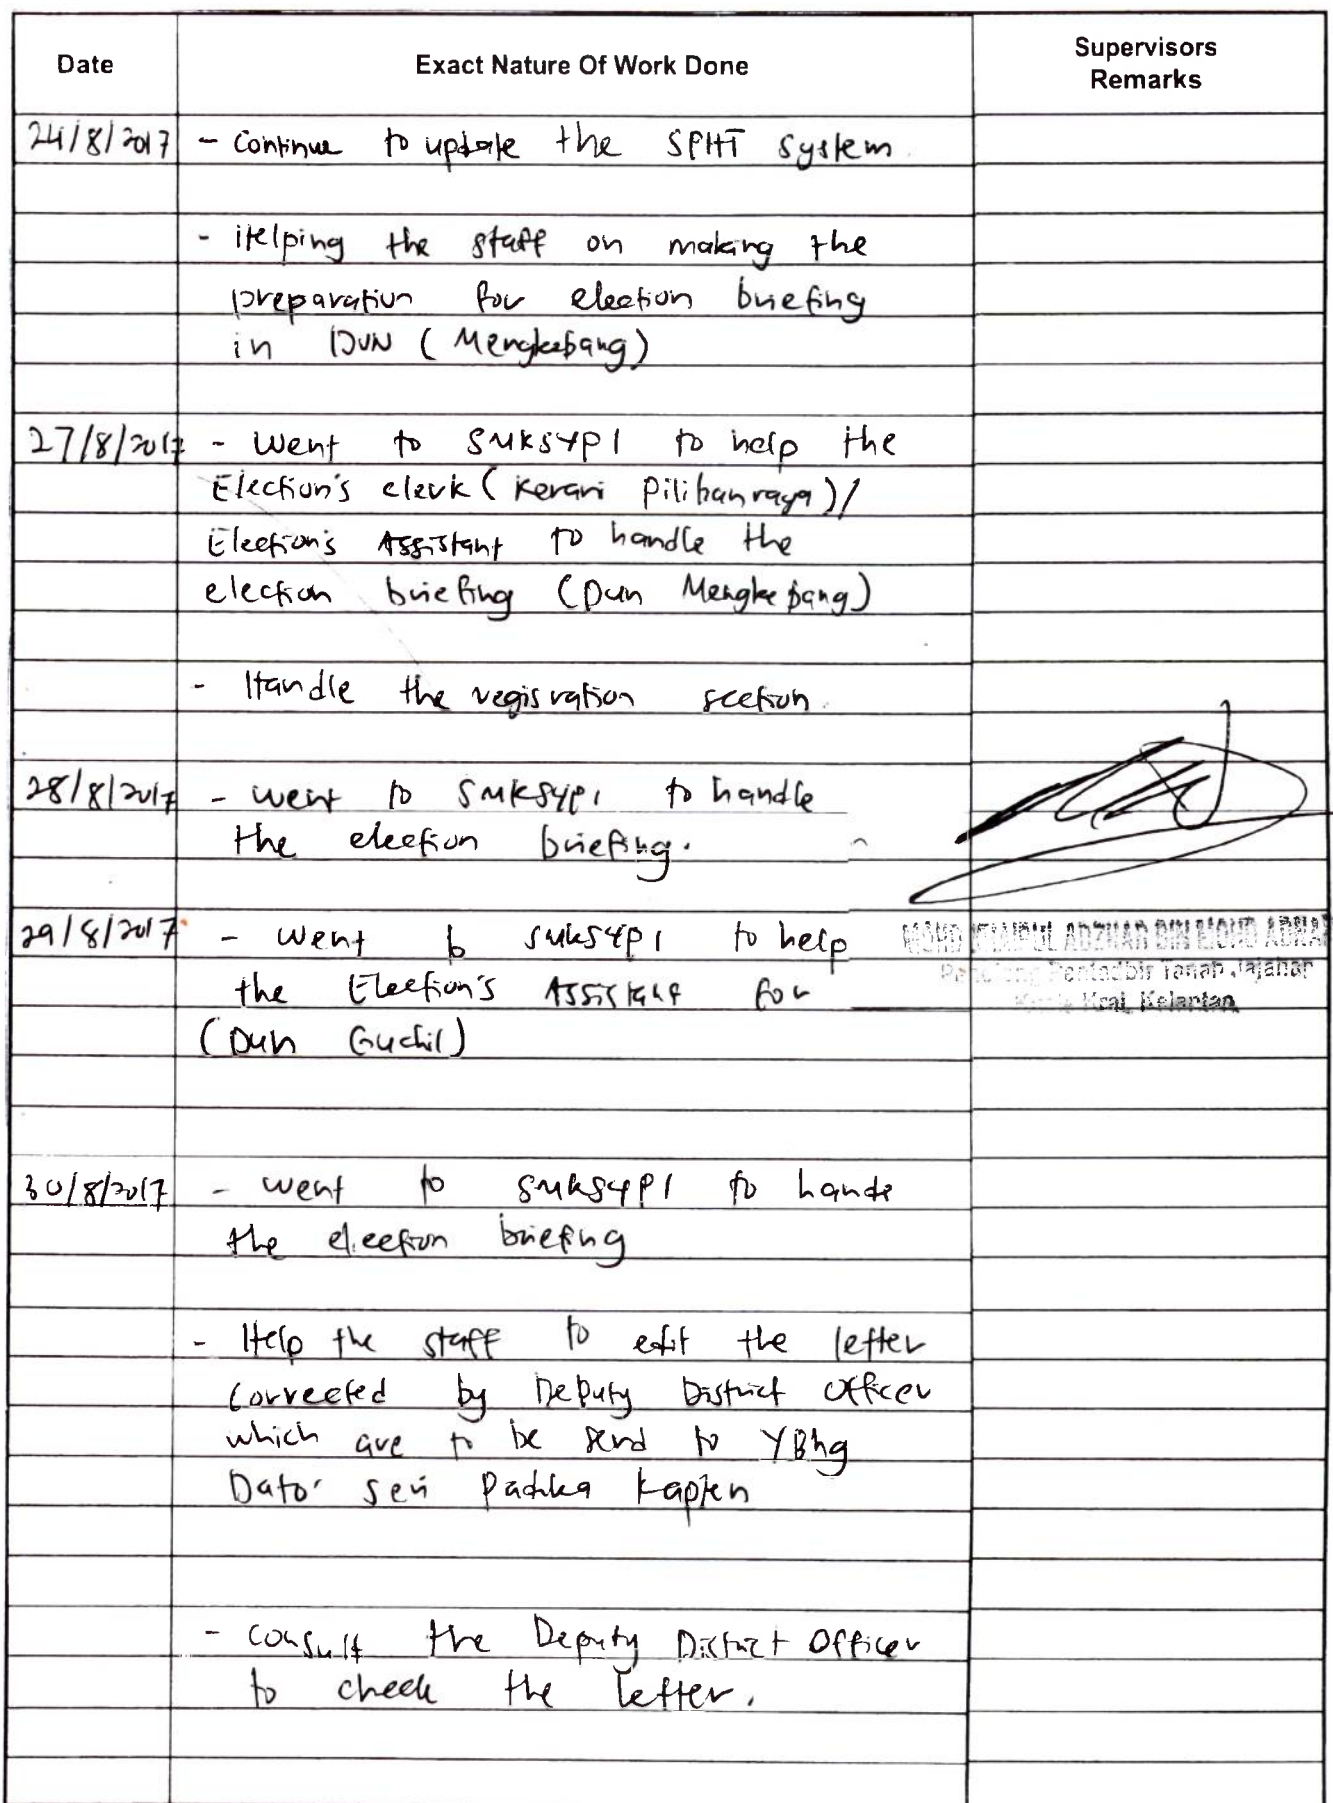 Date
Exact Nature Of Work Done
Supervisors
Remarks
24/8/2017 - Continue to update the SPHT system
- Helping the staff on making the
preparation for election briefing
in DUN (Mengkebang)
27/8/2017 - Went to SMKSYP1 to help the
Election's clerk (Kerani Pilihanraya)/
Election's Assistant to handle the
election briefing (Dun Mengkebang)
- Handle the regisration section
28/8/2017 - went to SMKSYP1 to handle
the election briefing.
29/8/2017 - Went to SMKSYP1 to help
the Election's Assistant for
(Dun Guchil)
MOHD ADZHAR BIN MOHD ADNA
Pentadbir Tanah Jajahan
Krai, Kelantan
30/8/2017 - went to SMKSYP1 to hande
the election briefing
- Help the staff to edit the letter
corrected by Deputy District Officer
which are to be send to YBhg
Dato' Seri Paduka Kapten
- consult the Deputy District Officer
to check the letter.